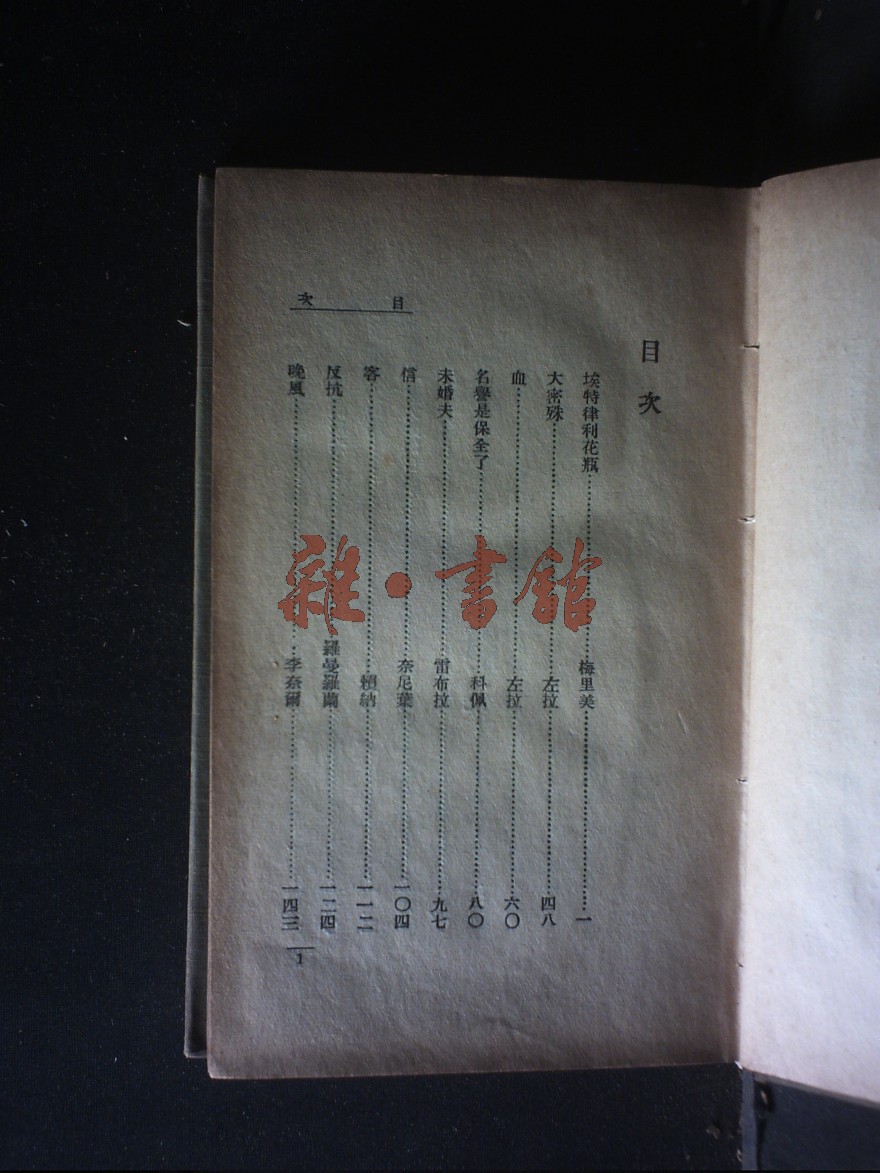 目次
目次
埃特律利花瓶……梅里美……一
大密殊……左拉……四八
血……左拉……六〇
名譽是保全了……科佩……八〇
未婚夫……雷布拉……九七
信……奈尼葉……一〇四
客……賴納……一一二
反抗……羅曼羅蘭……一二四
晚風……李奈爾……一四三
1
雜·書館